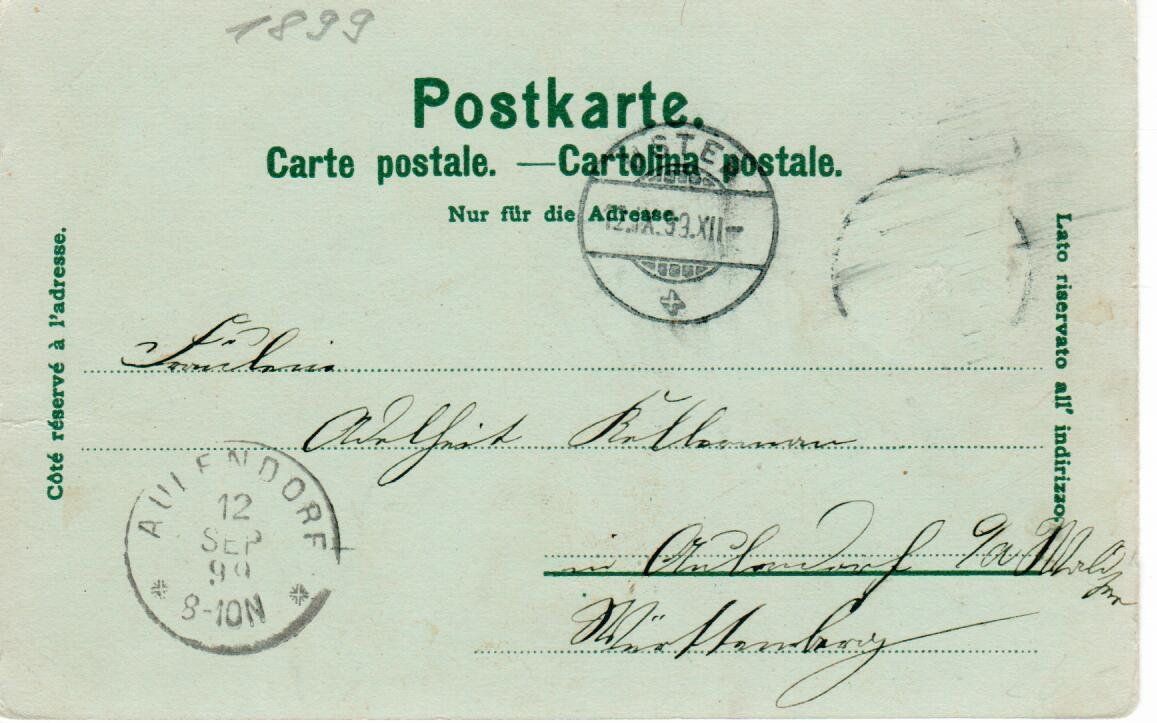 1899
Postkarte.
Carte postale. — Cartolina postale.
Nur für die Adresse.
Côté réservé à l'adresse.
Lato riservato all' indirizzo.
Fräulein
Adelheit Kellerman
in Aulendorf
Württemberg
AULENDORF
12
SEP
99
8-10N